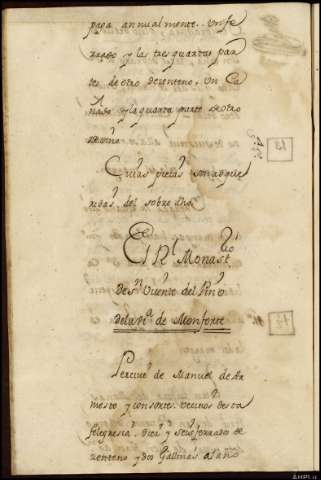 paga annualmente. Un fe
rrado y las tres quartas par
tes de otro de zenteno, Un Ca
nado y la quarta parte de otro
de vino
Cuias piezas son adquir
ridas del sobre dho
El Rl. Monastrio
De Sn. Vicente del Pino
de la Va. de Monforte
Percive de Manuel de Ar
mesto y consorte. Vecinos de esta
felegresia. Diez y seis ferrados de
zenteno y dos Gallinas al año